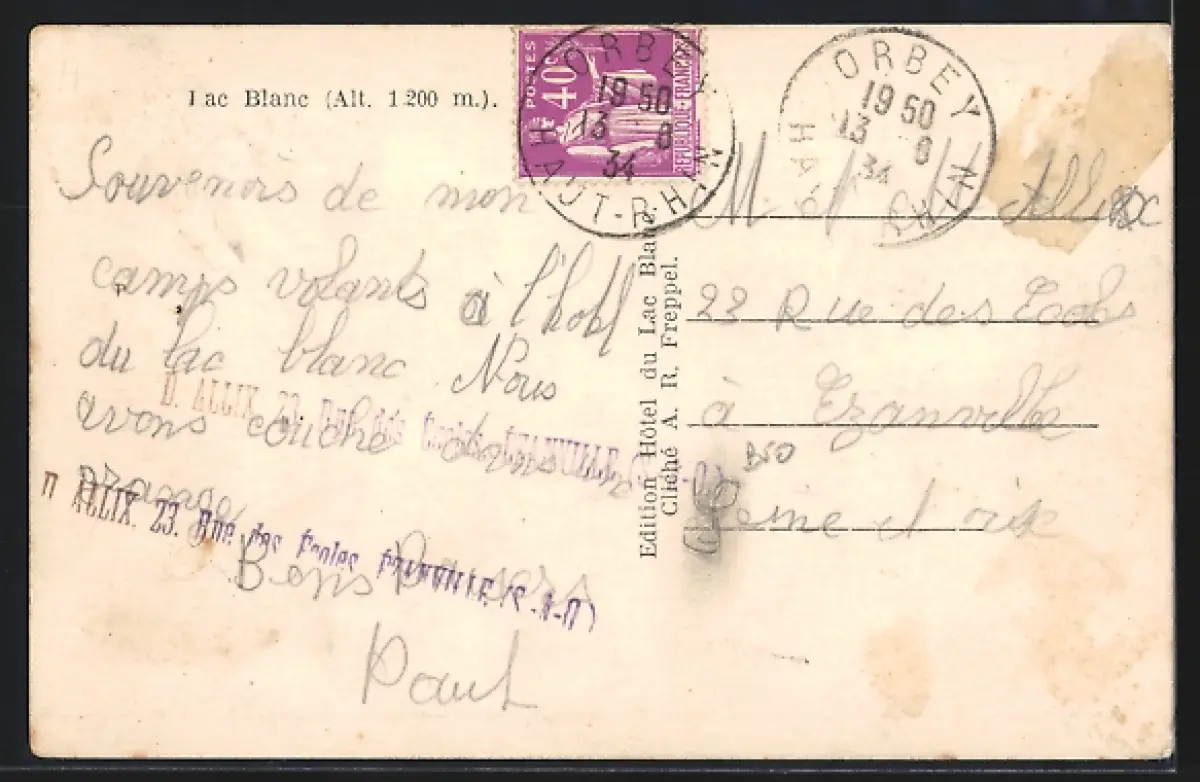 Lac Blanc (Alt. 1200 m.).
Souvenirs de mon
camps volants à l'hotl
du lac blanc Nous
avons couché dans
grange
Bons Baisers
Paul
POSTES
40c
REPUBLIQUE FRANÇAISE
ORBEY
19 50
13 8
34
HAUT-RHIN
ORBEY
19 50
13 8
34
HAUT-RHIN
Edition Hôtel du Lac Blanc.
Cliché A. R. Freppel.
M. et Allix
22 Rue des Ecoles
à Ezanville
Seine et oise
D. ALLIX 23, Rue des Ecoles EZANVILLE (S.-&-O.)
ALLIX 23, Rue des Ecoles EZANVILLE (S.-&-O.)